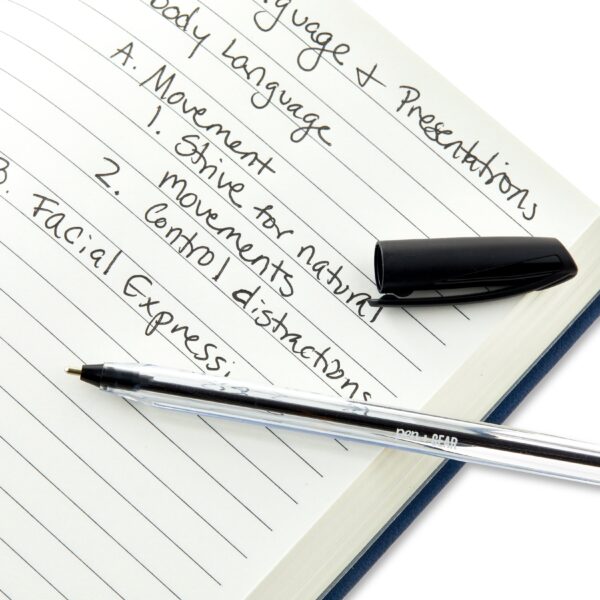 nguage + Presentations
body Language
A. Movement
1. Strive for natural
movements
2. Control distractions
B. Facial Expressi
pen + GEAR